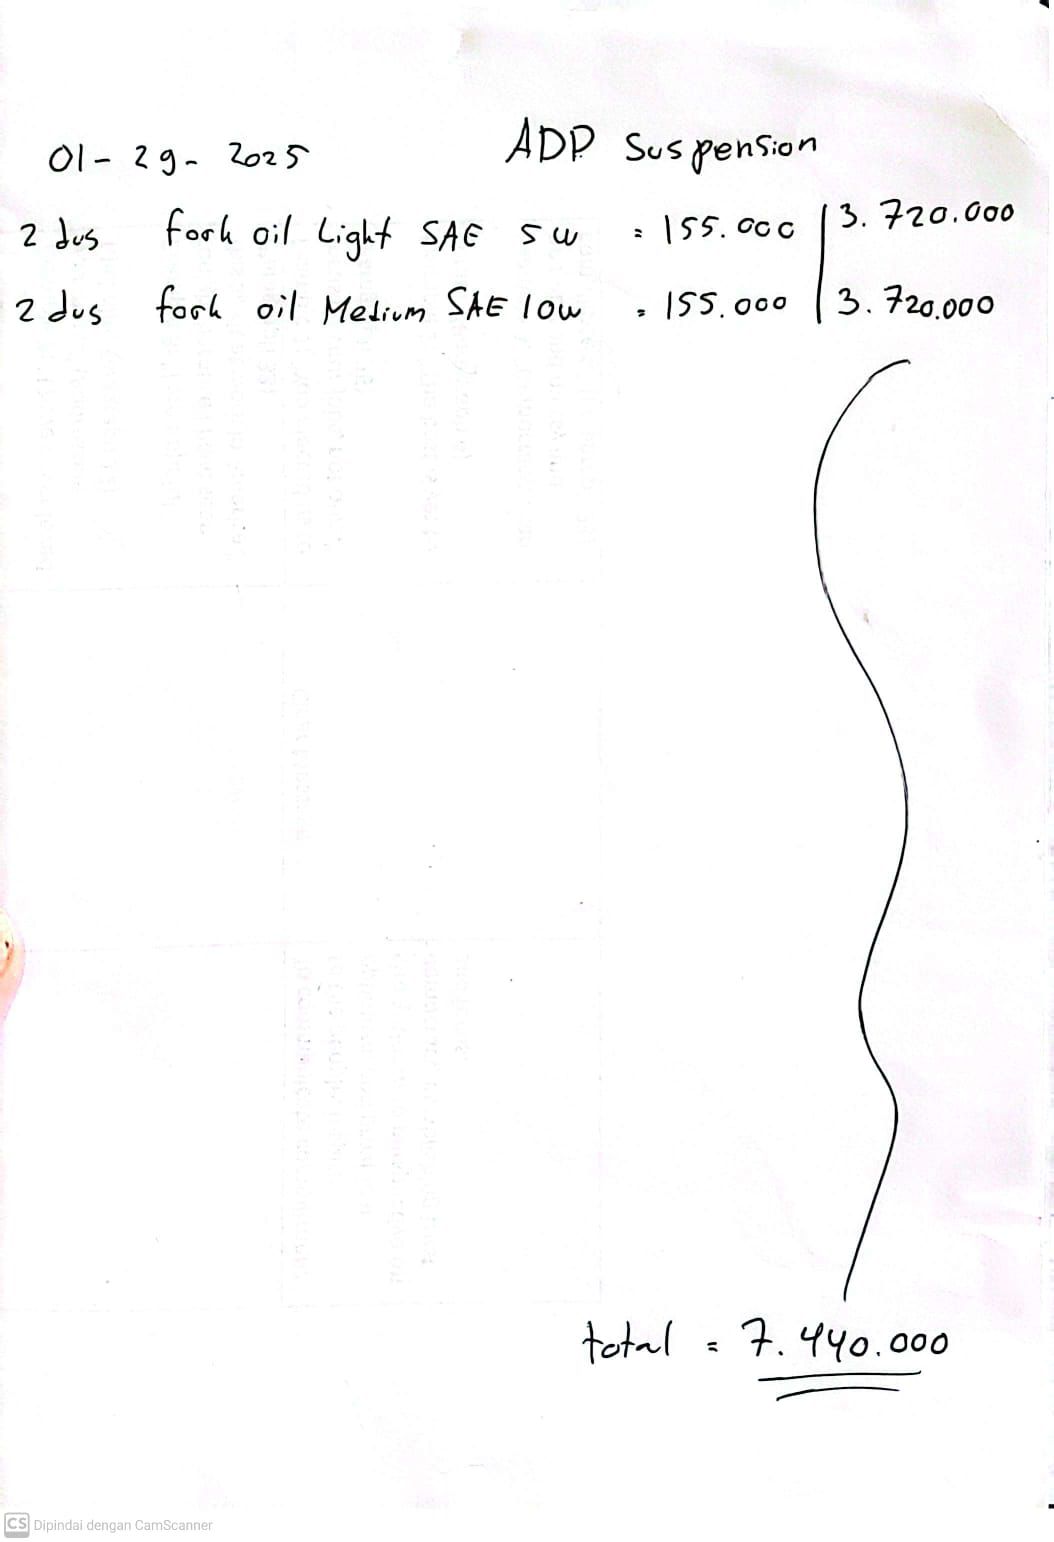 01-29-2025 ADP Suspension
2 dus fork oil Light SAE 5w = 155.000 | 3.720.000
2 dus fork oil Medium SAE 10w = 155.000 | 3.720.000
total = 7.440.000
CS Dipindai dengan CamScanner